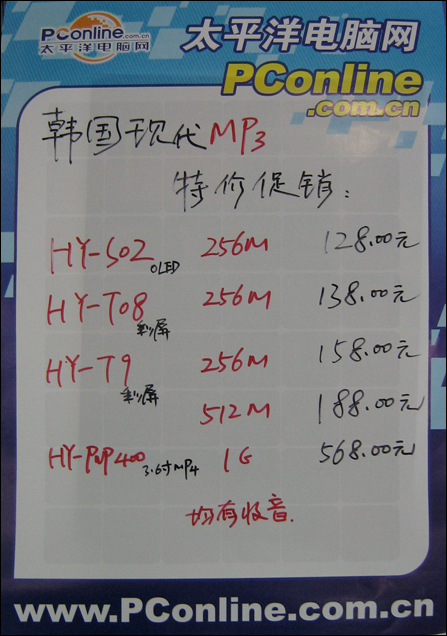 PConline.com.cn
太平洋电脑网
太平洋电脑网
PConline
.com.cn
韩国现代MP3
特价促销：
HY-S02 OLED 256M 128.00元
HY-T08 彩屏 256M 138.00元
HY-T9 彩屏 256M 158.00元
512M 188.00元
HY-PMP400 3.6寸MP4 1G 568.00元
均有收音.
www.PConline.com.cn